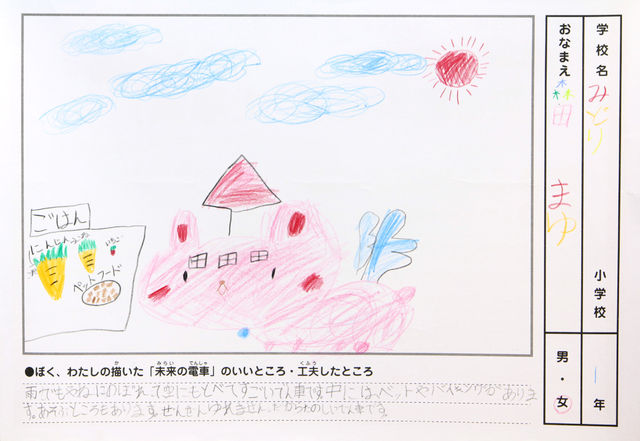 学校名 みどり 小学校
おなまえ 森田 まゆ
1年
男・女
ごはん
にんじん
いちご
ペットフード
●ぼく、わたしの描いた「未来の電車」のいいところ・工夫したところ
かみらいでんしゃくふう
雨でもやねにのぼれて空にもとべてすごいでん車です。中にはベットや があります。
あそぶところもあります。ぜんぜんゆれません。だからたのしいでん車です。